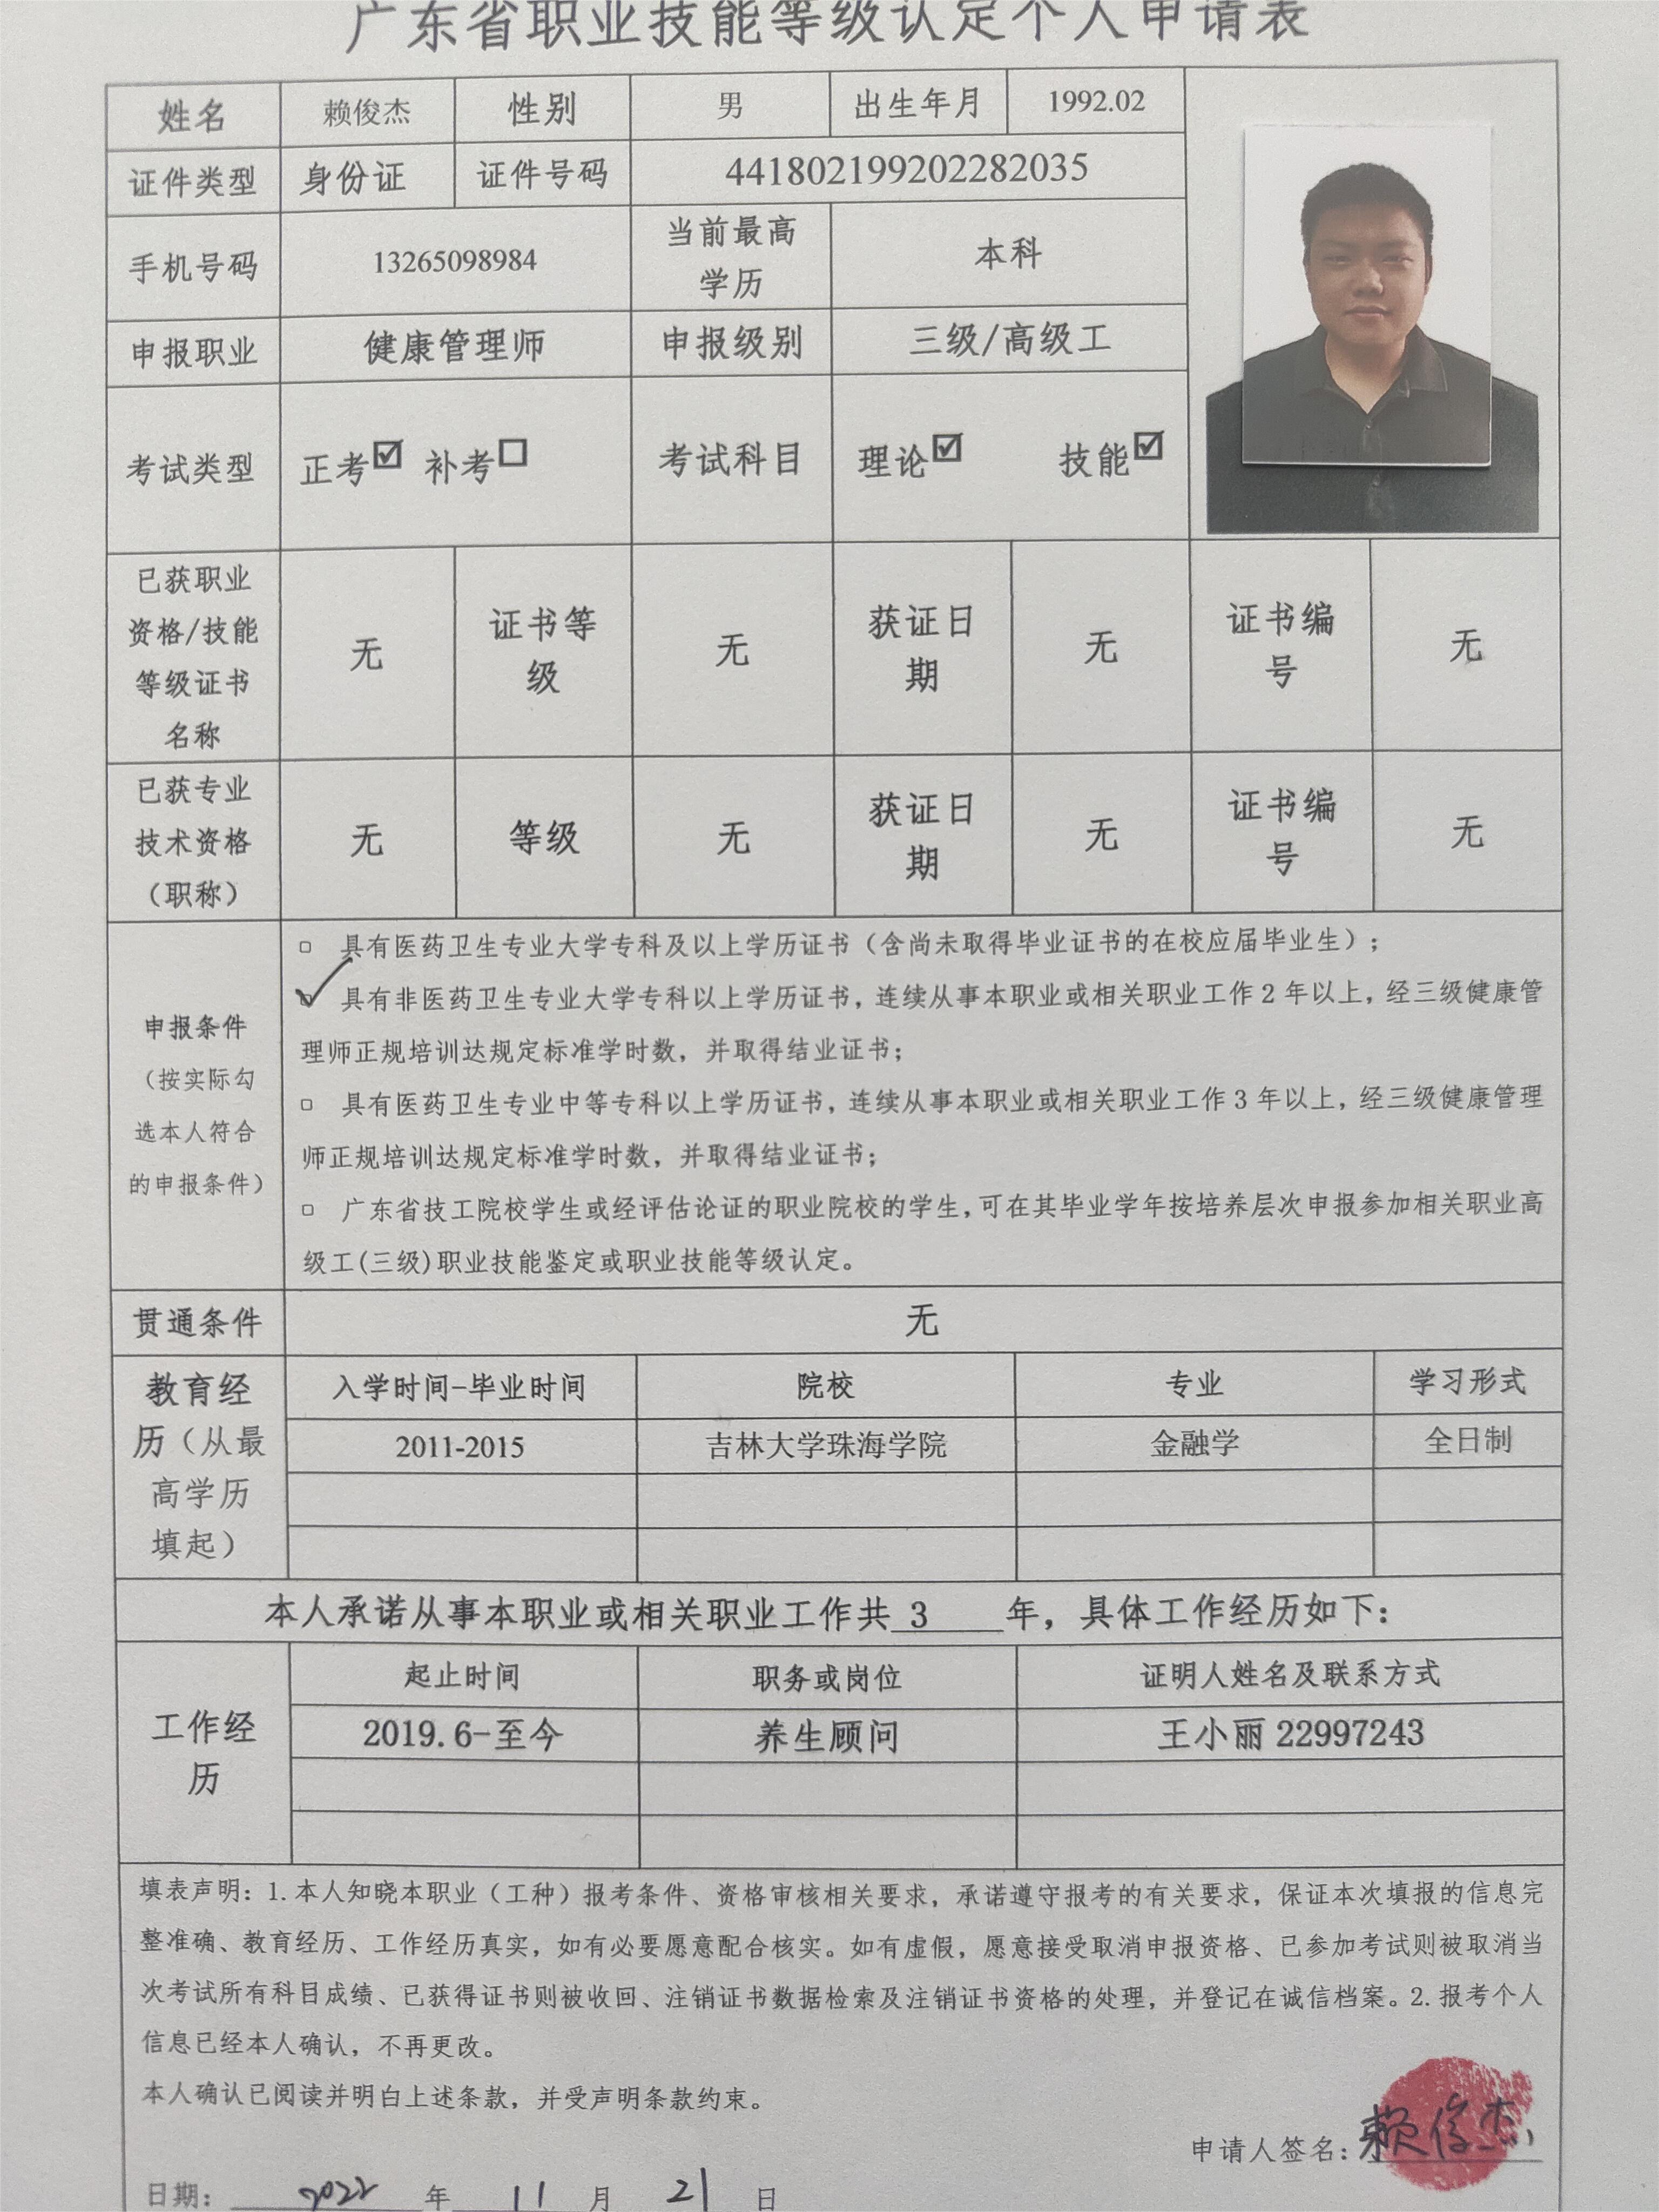 广东省职业技能等级认定个人申请表
姓名 赖俊杰 性别 男 出生年月 1992.02
证件类型 身份证 证件号码 441802199202282035
手机号码 13265098984 当前最高学历 本科
申报职业 健康管理师 申报级别 三级/高级工
考试类型 正考☑ 补考☐ 考试科目 理论☑ 技能☑
已获职业资格/技能等级证书名称 无 证书等级 无 获证日期 无 证书编号 无
已获专业技术资格（职称） 无 等级 无 获证日期 无 证书编号 无
申报条件（按实际勾选本人符合的申报条件）
□ 具有医药卫生专业大学专科及以上学历证书（含尚未取得毕业证书的在校应届毕业生）；
☑ 具有非医药卫生专业大学专科以上学历证书，连续从事本职业或相关职业工作2年以上，经三级健康管
理师正规培训达规定标准学时数，并取得结业证书；
□ 具有医药卫生专业中等专科以上学历证书，连续从事本职业或相关职业工作3年以上，经三级健康管理
师正规培训达规定标准学时数，并取得结业证书；
□ 广东省技工院校学生或经评估论证的职业院校的学生，可在其毕业学年按培养层次申报参加相关职业高
级工(三级)职业技能鉴定或职业技能等级认定。
贯通条件 无
教育经历（从最高学历填起） 入学时间-毕业时间 院校 专业 学习形式
2011-2015 吉林大学珠海学院 金融学 全日制
本人承诺从事本职业或相关职业工作共 3 年，具体工作经历如下：
工作经历 起止时间 职务或岗位 证明人姓名及联系方式
2019.6-至今 养生顾问 王小丽 22997243
填表声明：1.本人知晓本职业（工种）报考条件、资格审核相关要求，承诺遵守报考的有关要求，保证本次填报的信息完
整准确、教育经历、工作经历真实，如有必要愿意配合核实。如有虚假，愿意接受取消申报资格、已参加考试则被取消当
次考试所有科目成绩、已获得证书则被收回、注销证书数据检索及注销证书资格的处理，并登记在诚信档案。2.报考个人
信息已经本人确认，不再更改。
本人确认已阅读并明白上述条款，并受声明条款约束。
申请人签名：赖俊杰
日期： 2022 年 11 月 21 日